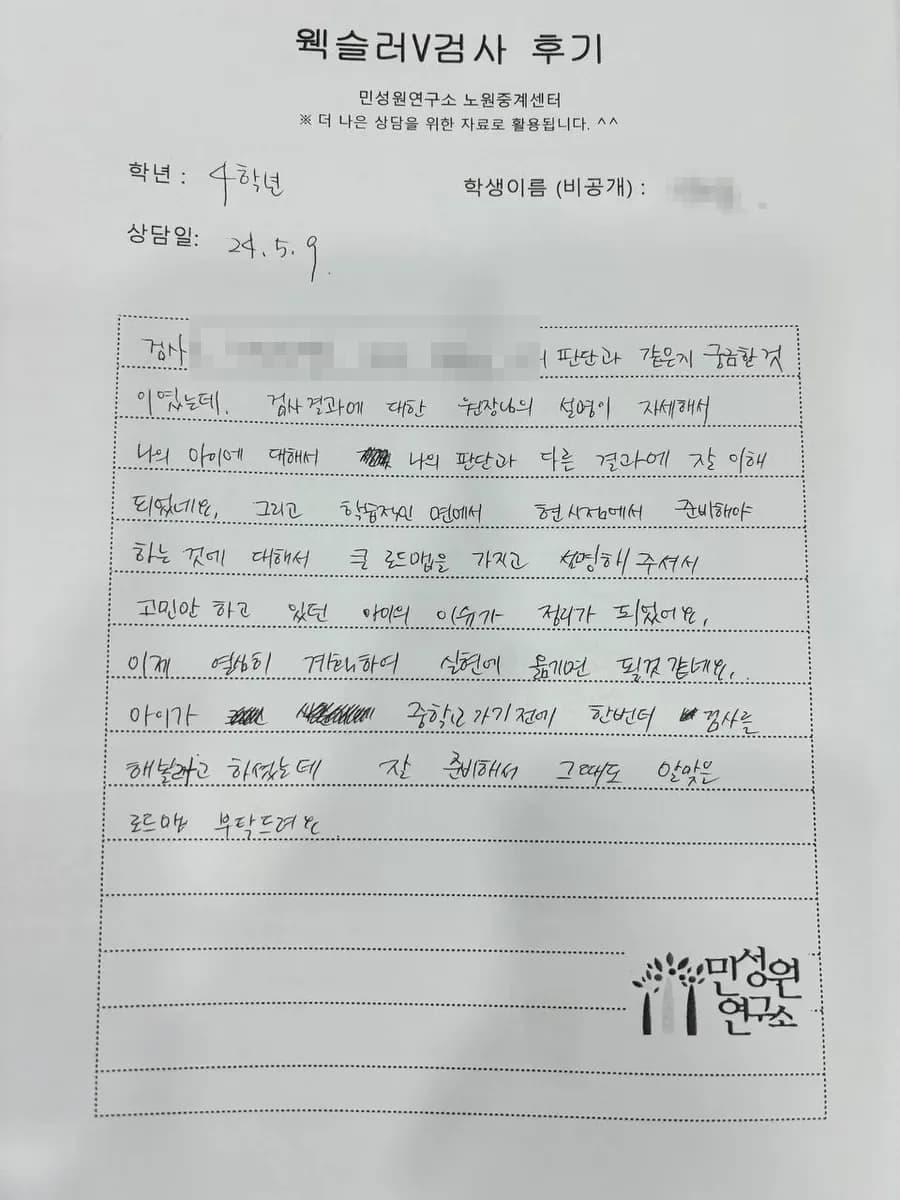 웩슬러V검사 후기
민성원연구소 노원중계센터
※ 더 나은 상담을 위한 자료로 활용됩니다. ^^
학년 : 4학년
학생이름 (비공개) :
상담일: 24.5.9.
검사 판단과 같은지 궁금한것
이였는데. 검사결과에 대한 원장님의 설명이 자세해서
나의 아이에 대해서 나의 판단과 다른 결과에 잘 이해
되었네요. 그리고 학습적인 면에서 현시점에서 준비해야
하는 것에 대해서 큰 로드맵을 가지고 설명해 주셔서
고민만 하고 있던 아이의 이슈가 정리가 되었어요.
이제 열심히 계획하여 실현에 옮기면 될것 같네요.
아이가 중학교 가기전에 한번더 검사를
해보라고 하셨는데 잘 준비해서 그때도 알맞은
로드맵 부탁드려요.
민성원
연구소